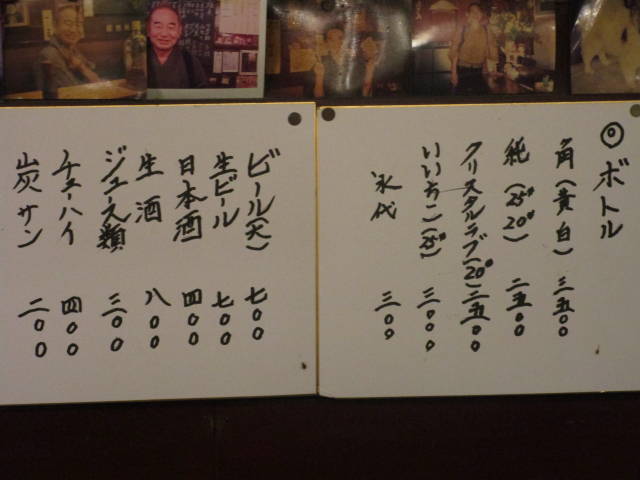 ◎ボトル
角(黄白) 三五〇〇
純(25°20°) 二五〇〇
クリスタルラブ(20°) 二五〇〇
いいちこ(25°) 三〇〇〇
氷代 三〇〇
ビール(大) 七〇〇
生ビール 七〇〇
日本酒 四〇〇
生酒 八〇〇
ジュース類 三〇〇
チューハイ 四〇〇
炭サン 二〇〇